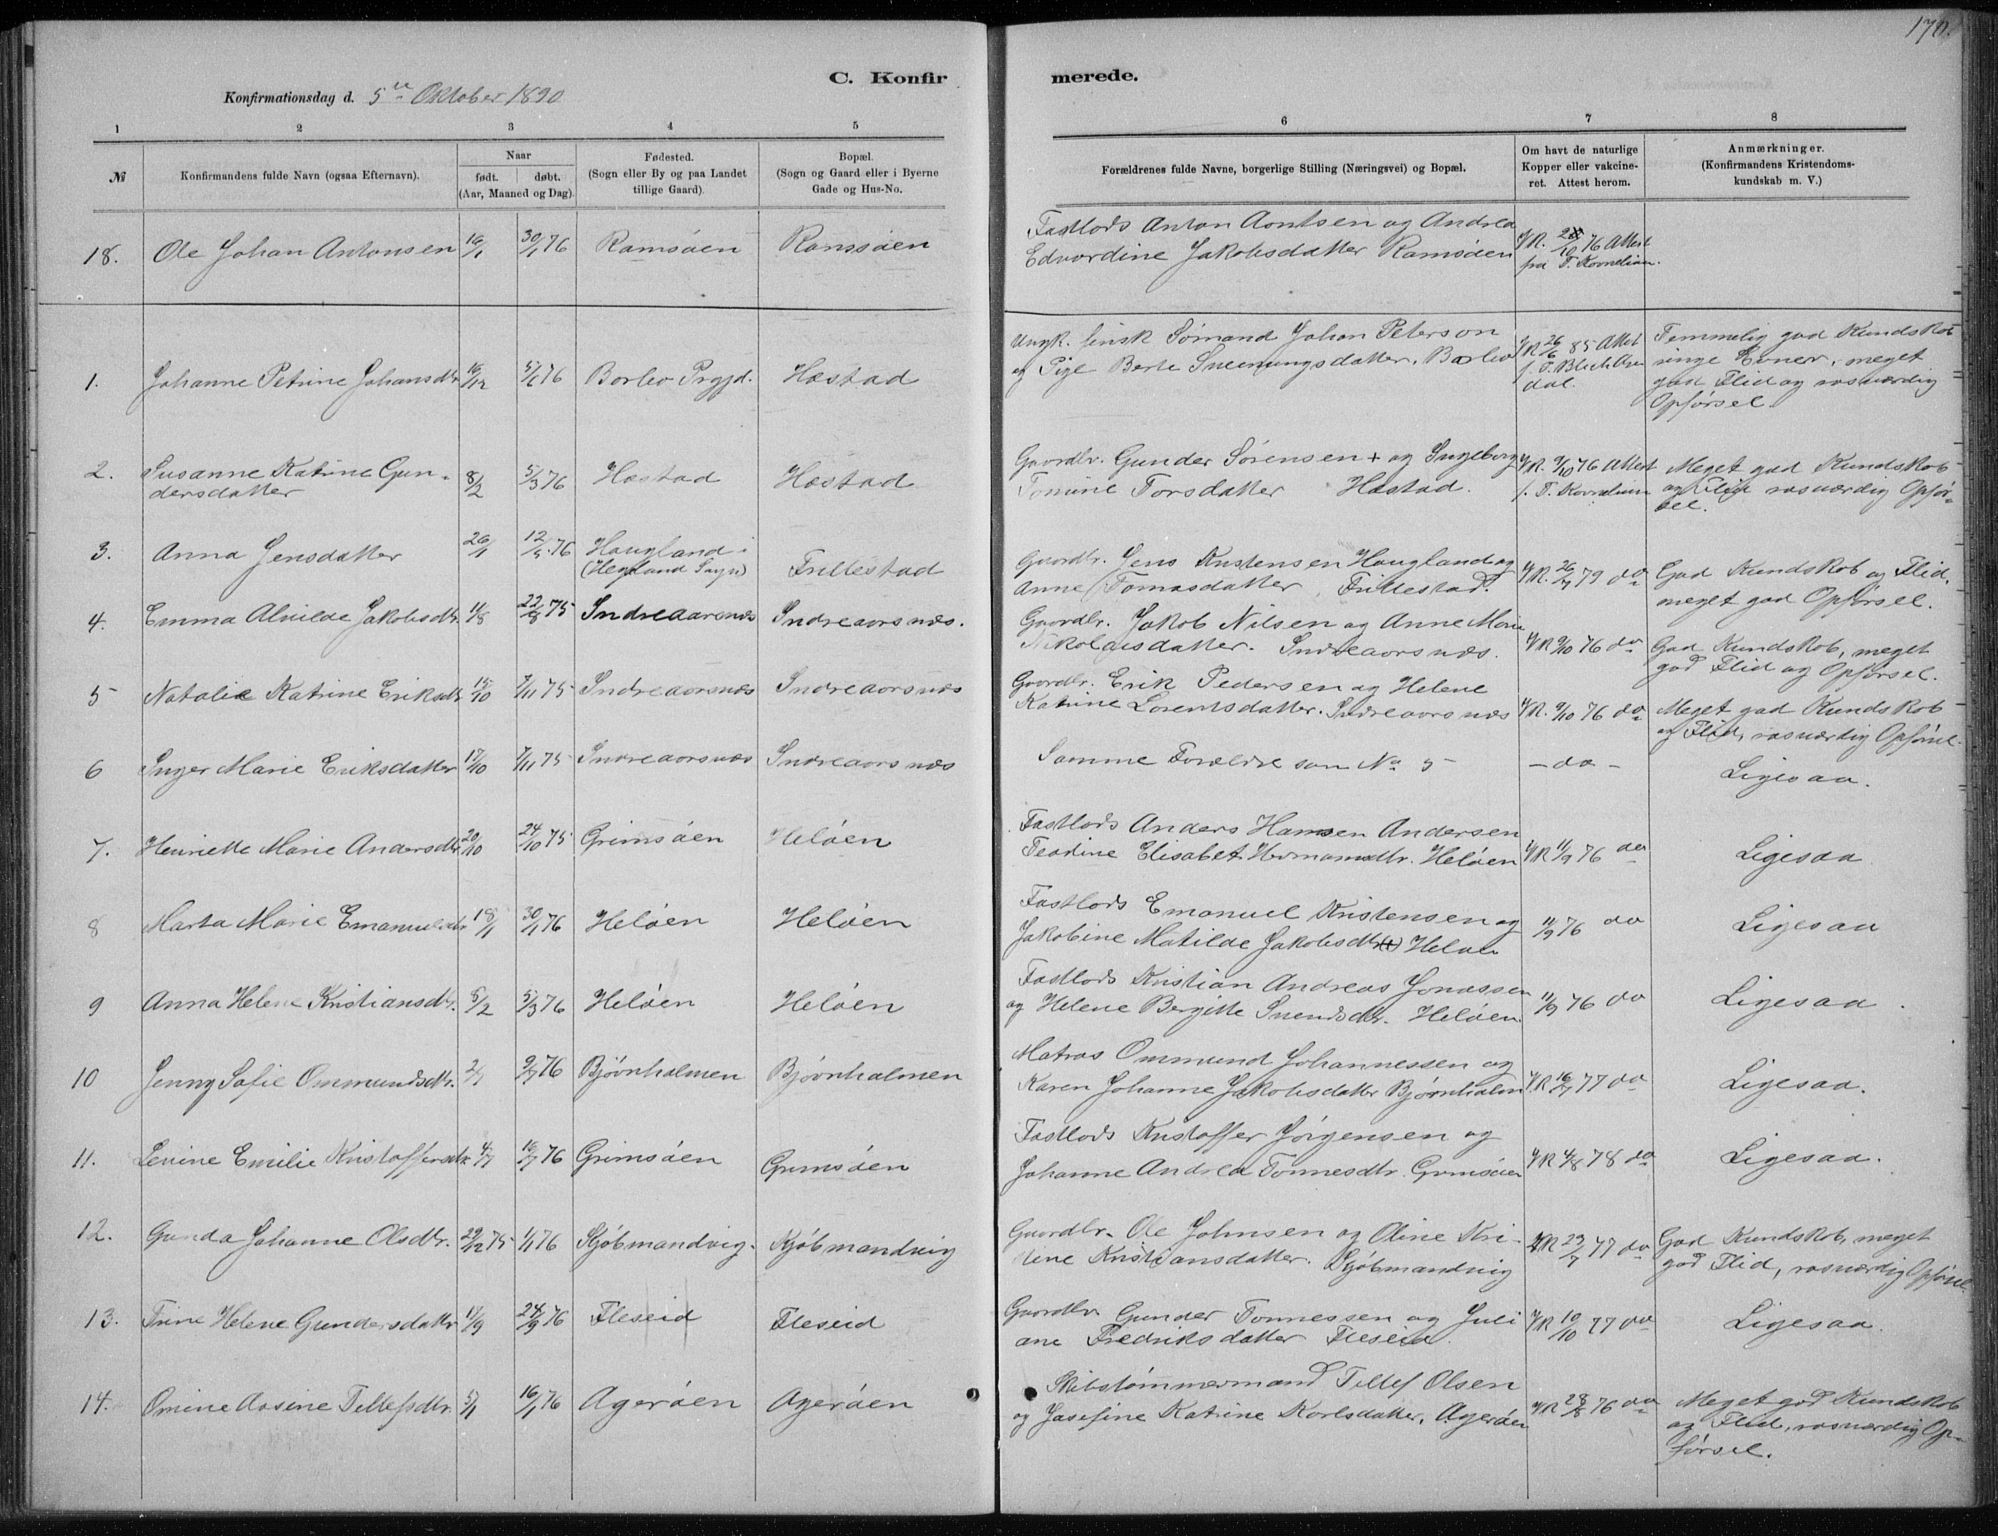 170.
C. Konfirmerede.
Konfirmationsdag d. 5te Oktober 1890
1 2 3 4 5 6 7 8
№
Konfirmandens fulde Navn (ogsaa Efternavn).
Naar
født. døbt.
(Aar, Maaned og Dag).
Fødested.
(Sogn eller By og paa Landet
tillige Gaard).
Bopæl.
(Sogn og Gaard eller i Byerne
Gade og Hus-No.
Forældrenes fulde Navne, borgerlige Stilling (Næringsvei) og Bopæl.
Om havt de naturlige
Kopper eller vakcine-
ret. Attest herom.
Anmærkninger.
(Konfirmandens Kristendoms-
kundskab m. V.)
18. Ole Johan Antonsen 16/1 30/1 76 Ramsøen Ramsøen
Fastlods Anton Aontsen og Andrea
Edvardine Jakobsdatter Ramsøen
76 Attest
fra T. Kornelian.
1. Johanne Petrine Johansdtr 16/12 5/1 76 Borløo Prgjd. Hæstad
Ungk. finsk Sømand Johan Peterson
og Pige Berte Sveinungsdatter,
VR 26/6 85 Attest
Temmelig god Kundskab
ringe Evner, meget
god Flid og rosværdig
Opførsel.
2. Susanne Katrine Gun-
dersdatter 8/2 5/3 76 Hæstad Hæstad
Gaardbr. Gunder Sørensen + og Ingeborg
Tomine Torsdatter Hæstad.
VR. 9/10 76 Attest
f. T. Kornelian
Meget god Kundskab
og Flid rosværdig Opfør-
sel.
3. Anna Jensdatter 26/1 12/5 76 Haugland i
(Hegland Sogn) Frillestad
Gaardbr. Jens Kristensen Haugland og
Anne Tomasdatter, Frillestad.
VR. 26/7 79 do
God Kundskab og Flid,
meget god Opførsel.
4. Emma Alvilde Jakobsdtr. 11/8 22/8 75 Indreaarsnæs Indreaarsnæs.
Gaardbr. Jakob Nilsen og Anne Marie
Nikolaisdatter. Indreaarsnæs.
VR 9/10 76 do
God Kundskab, meget
god Flid og Opførsel.
5 Natalie Katrine Eriksdtr 15/10 7/11 75 Indreaarsnæs Indreaarsnæs
Gaardbr. Erik Pedersen og Helene
Katrine Lorentsdatter. Indreaarsnæs
VR. 9/10 76 do
Meget god Kundskab
og Flid, rosværdig Opførsel.
6 Inger Marie Eriksdatter 15/10 7/11 75 Indreaarsnæs Indreaarsnæs
Samme Forældre som No 5 - do - Ligesaa.
7. Henriette Marie Andersdtr 20/10 24/10 75 Grimsøen Heløen
Fastlods Anders Hansen Andersen
Teodine Elisabet Hermansdtr. Heløen
VR 11/9 76 do
Ligesaa
8 Marta Marie Emanuelsdtr 18/1 30/1 76 Heløen Heløen
Fastlods Emanuel Kristensen og
Jakobine Matilde Jakobsdtr (+) Heløen
11/9 76 do
Ligesaa
9 Anna Helene Kristiansdtr. 8/2 5/3 76 Heløen Heløen
Fastlods Kristian Andreas Jonassen
og Helene Bergitte Svendsdtr. Heløen.
11/9 76 do
Ligesaa.
10 Jenny Sofie Ommundsdtr. 2/7 9/7 76 Bjørnholmen Bjørnholmen
Matros Ommund Johannessen og
Karen Johanne Jakobsdatter Bjørnholm
VR 16/7 77 do
Ligesaa.
11. Levine Emilie Kristoffersdtr 4/7 16/7 76 Grimsøen Grimsøen
Fastlods Kristoffer Jørgensen og
Johanne Andrea Tonnesdtr. Grimsøen
VR 4/8 78 do
Ligesaa.
12. Gunda Johanne Olsdtr. 29/12 75 1/1 76 Kjøbmandvig. Kjøbmandvig
Gaardbr. Ole Johnsen og Oline Kri-
stene Kristiansdatter. Kjøbmandvig
VR 29/7 77 do
God Kundskab, meget
god Flid, rosværdig Opførsel.
13. Trine Helene Gundersdatter 11/9 24/9 76 Fleseid Fleseid
Gaardbr Gunder Tonnessen og Juli
ane Fredriksdatter Fleseid
VR 10/10 77 do
Ligesaa.
14. Omine Aasine Tellefsdtr. 5/1 16/1 76 Agerøen Agerøen
Skibstømmermand Tellef Olsen
og Josefine Katrine Karlsdatter, Agerøen
VR 28/8 76 do
Meget god Kundskab
og Flid, rosværdig Op-
førsel.